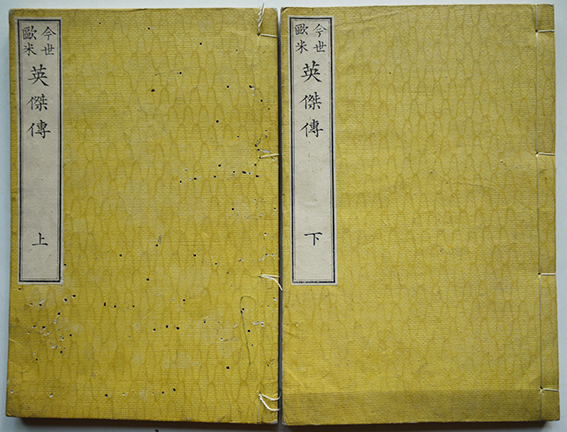 今世
歐米
英傑傳
上
今世
歐米
英傑傳
下